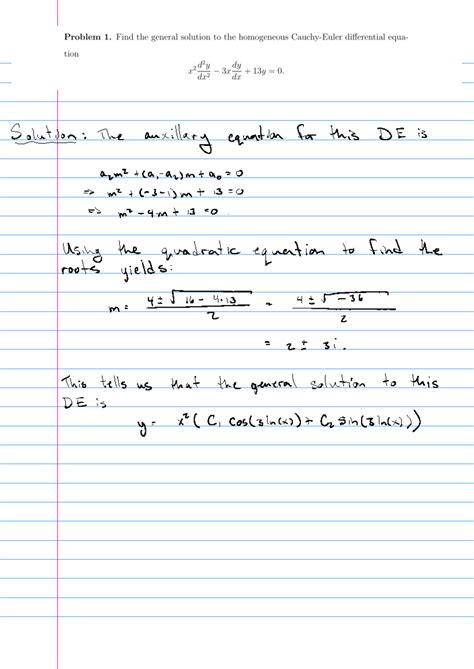 Problem 1. Find the general solution to the homogeneous Cauchy-Euler differential equa-
tion
x² d²y/dx² − 3x dy/dx + 13y = 0.
Solution: The auxillary equation for this DE is
a₂m² + (a₁-a₂)m + a₀ = 0
⇒ m² + (-3-1)m + 13 = 0
⇒ m² - 4m + 13 = 0.
Using the quadratic equation to find the
roots yields:
m = (4 ± √(16 - 4·13))/2 = (4 ± √(-36))/2
= 2 ± 3i.
This tells us that the general solution to this
DE is
y = x² ( C₁ cos(3 ln(x)) + C₂ sin(3 ln(x)))